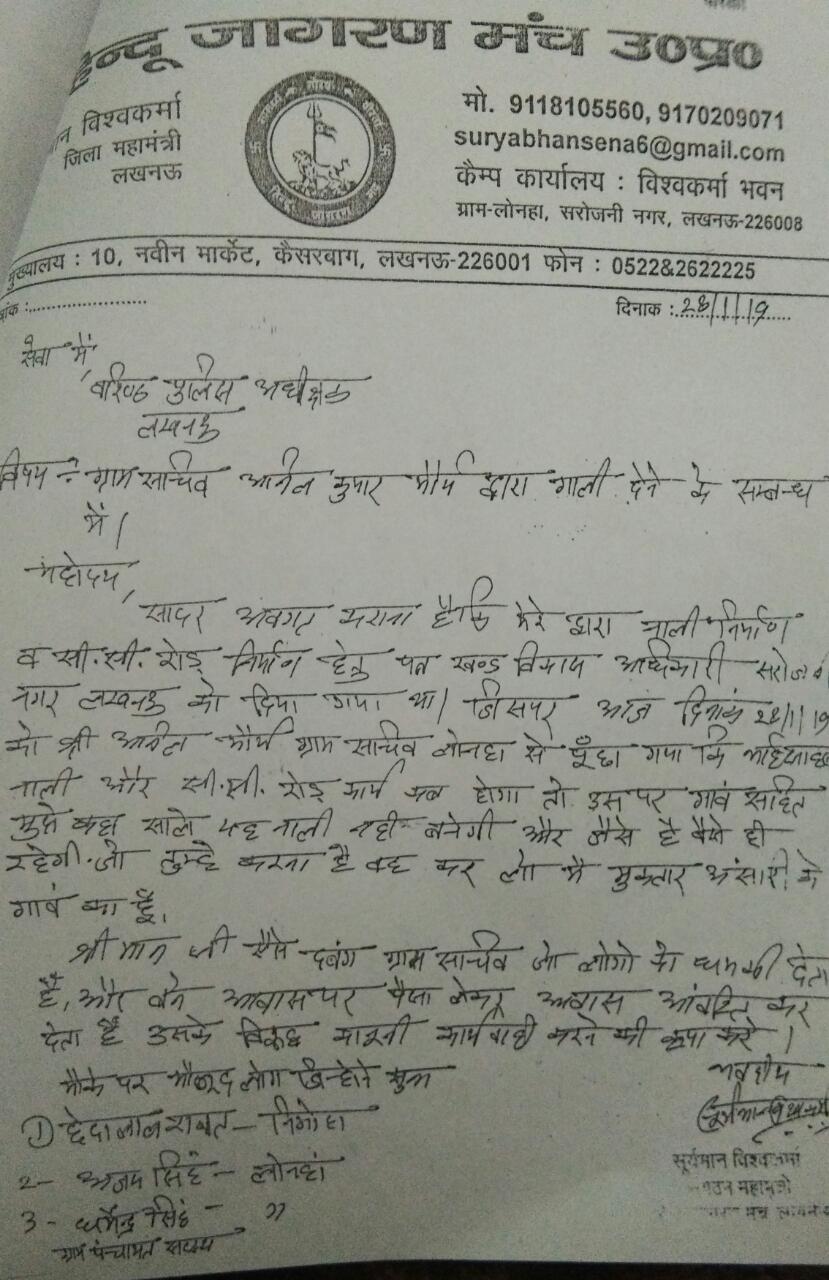 हिन्दू जागरण मंच उ०प्र०
विश्वकर्मा
जिला महामंत्री
लखनऊ
मो. 9118105560, 9170209071
suryabhansena6@gmail.com
कैम्प कार्यालय : विश्वकर्मा भवन
ग्राम-लोनहा, सरोजनी नगर, लखनऊ-226008
मुख्यालय : 10, नवीन मार्केट, कैसरबाग, लखनऊ-226001 फोन : 0522&2622225
दिनाक : 28/1/19
सेवा में,
वरिष्ठ पुलिस अधीक्षक
लखनऊ
विषय :- ग्राम सचिव अनिल कुमार मौर्य द्वारा गाली देने के सम्बन्ध
में।
महोदय,
सादर अवगत कराना है कि मेरे द्वारा नाली निर्माण
व सी.सी. रोड निर्माण हेतु पत्र खण्ड विकास अधिकारी सरोजनी
नगर लखनऊ को दिया गया था। जिसपर आज दिनांक 28/1/19
को श्री अनिल मौर्य ग्राम सचिव लोनहा से पूँछा गया कि
नाली और सी.सी. रोड कार्य कब होगा तो उस पर गांव सहित
मुझे कहा साले यह नाली नही बनेगी और जैसे है वैसे ही
रहेगी. जो तुम्हे करना है वह कर लो मै मुक्तार अंसारी के
गावं का हूँ.
श्री मान जी ऐसे दबंग ग्राम सचिव जो लोगो को धमकी देता
है, और आवास पर पैसा लेकर आवास आंवटित कर
देता है उसके विरूद्ध कानूनी कार्यवाही करने की कृपा करें।
मौके पर मौजूद लोग जिन्होने सुना
भवदीय
1) छेदालाल रावत - निगोहा
2- अजय सिंह - लोनहा
3- धर्मेन्द्र सिंह - "
ग्राम पंचायत सदस्य
सूर्यभान विश्वकर्मा